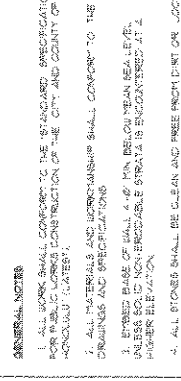 GENERAL NOTES
1. ALL WORK SHALL CONFORM TO THE "STANDARD SPECIFICATIO
FOR PUBLIC WORKS CONSTRUCTION OF THE CITY AND COUNTY OF
HONOLULU (LATEST).
2. ALL MATERIALS AND WORKMANSHIP SHALL CONFORM TO THE
DRAWINGS AND SPECIFICATIONS
3. EMBED BASE OF WALL MIN. BELOW MEAN SEA LEVEL
UNLESS SOLID NON-ERODABLE STRATA IS ENCOUNTERED AT A
HIGHER ELEVATION.
4. ALL STONES SHALL BE CLEAN AND FREE FROM DIRT OR